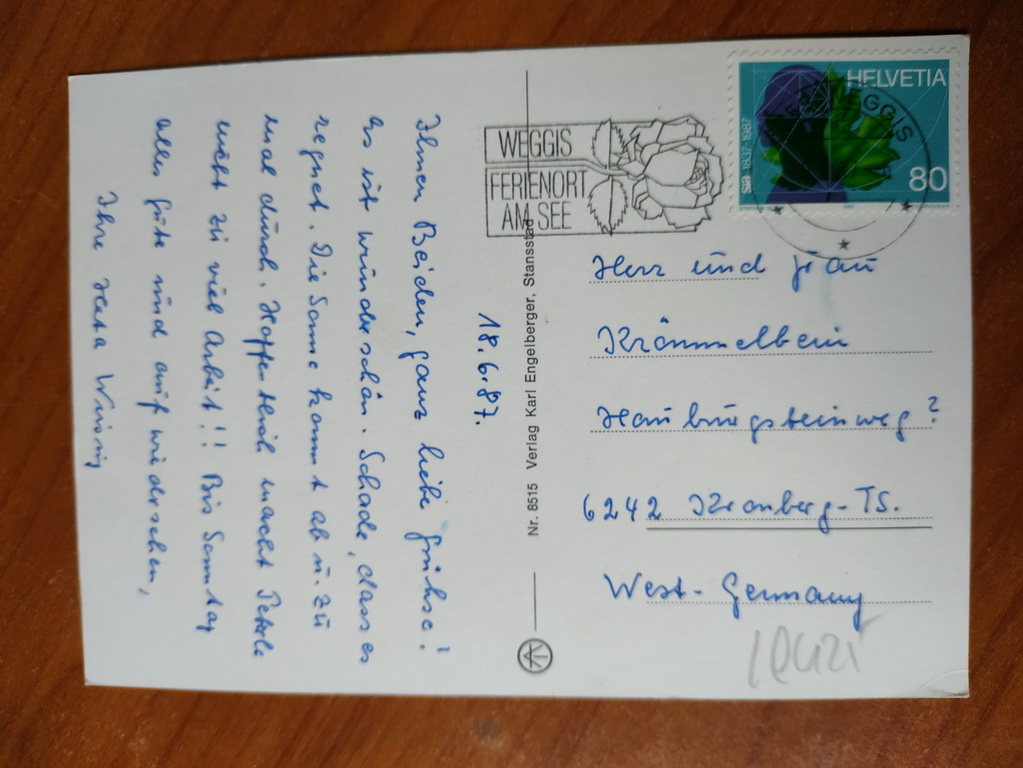 18.6.87.
Ihnen Beiden, ganz liebe Grühse!
Es ist wunderschön. Schade, dass es
regnet. Die Sonne kommt ab u. zu
mal durch. Hoffentlich macht Peterle
nicht zu viel Arbeit!! Bis Sonntag
alles gute und auf wiedersehen,
Ihre
WEGGIS
FERIENORT
AM SEE
HELVETIA
80
sia 1837-1987
WEGGIS
Nr. 8515 Verlag Karl Engelberger, Stansstad
Herr und Frau
Krömmelbein
6242 Kronberg-TS.
West-Germany